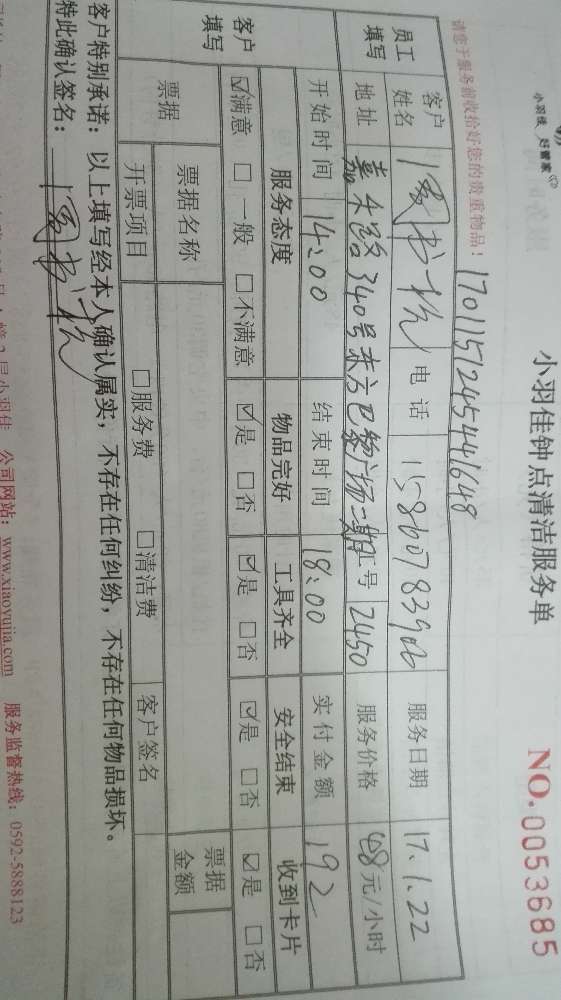 小羽佳
小羽佳钟点清洁服务单
NO.0053685
1701151245441648
请您于服务前收拾好您的贵重物品!
员工填写 客户姓名 电话 服务日期 17.1.22
地址 嘉禾路340号东方巴黎广场二期 工号 2450 服务价格 48元/小时
开始时间 14:00 结束时间 18:00 实付金额 192
客户填写 服务态度 物品完好 工具齐全 安全结束 收到卡片
☑满意 □一般 □不满意 ☑是 □否 ☑是 □否 ☑是 □否 ☑是 □否
票据 票据名称 票据金额
开票项目 □服务费 □清洁费 客户签名
客户特别承诺:以上填写经本人确认属实,不存在任何纠纷,不存在任何物品损坏。
特此确认签名:
幢2层小羽佳 公司网站:www.xiaoyujia.com 服务监督热线:0592-5888123